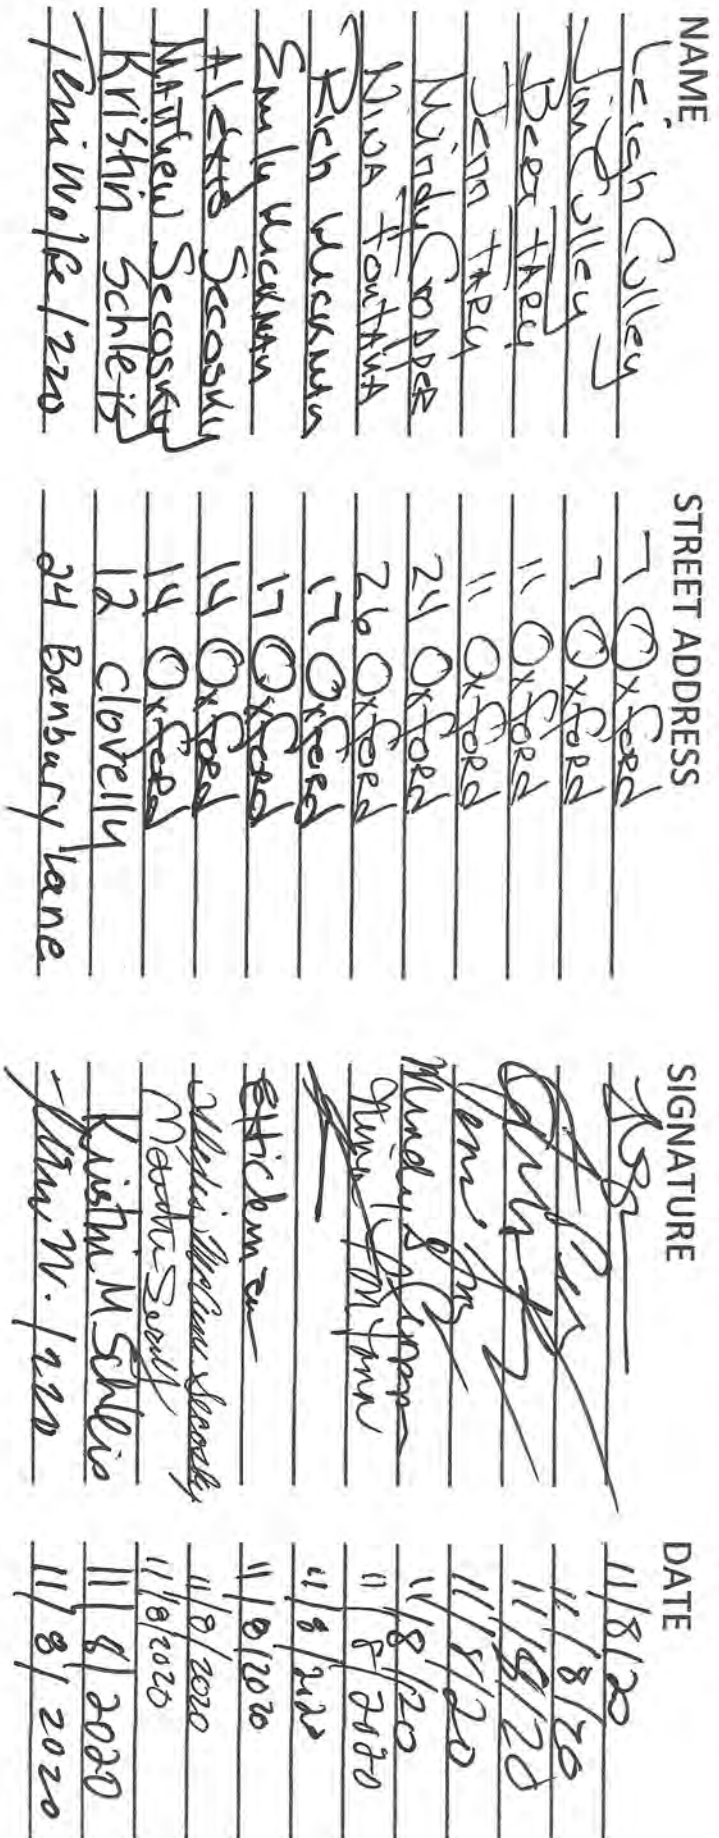 NAME STREET ADDRESS SIGNATURE DATE
Leigh Culley 7 Oxford 11/8/20
Jim Culley 7 Oxford 11/8/20
Bert TARY 11 Oxford 11/8/20
Jenn TARY 11 Oxford Jenn 11/8/20
Mindy Cropper 24 Oxford Mindy S 11/8/20
NINA FONTANA 26 Oxford Nina Fontana 11/8/2020
Rich Hickman 17 Oxford 11/8/2020
Emily Hickman 17 Oxford EHickman 11/8/2020
Alexis Secosky 14 Oxford Alexis Secosky 11/8/2020
MATTHEW Secosky 14 Oxford 11/8/2020
Kristin Schleis 12 Clovelly Kristin M Schleis 11/8/2020
Temi Wolfe/220 24 Banbury Lane W./220 11/8/2020